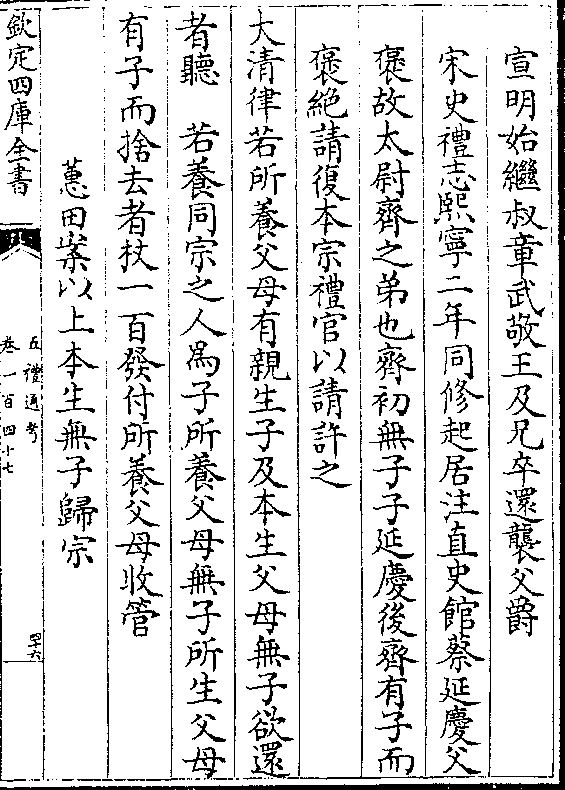 宣明始繼叔章武敬王及兄卒還襲父爵
宋史禮志熙寧二年同修起居注直史館蔡延慶父
褒故太尉齊之弟也齊初無子子延慶後齊有子而
褒絶請復本宗禮官以請許之
大清律若所養父母有親生子及本生父母無子欲還
者聽　若養同宗之人爲子所養父母無子所生父母
有子而捨去者杖一百發付所養父母收管
蕙田案以上本生無子歸宗
欽定四庫全書
五禮通考
卷一百四十七
四十六